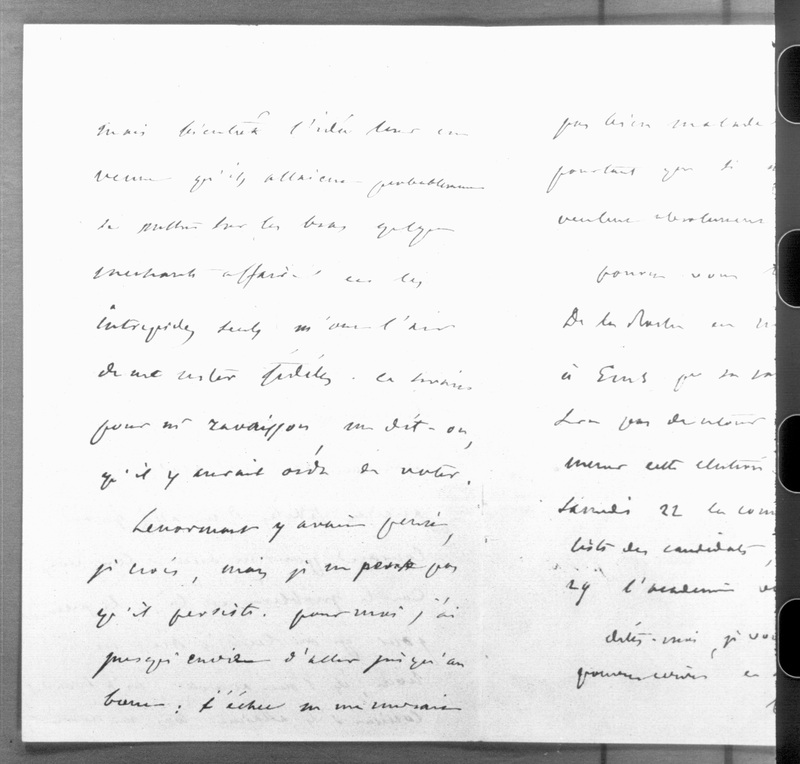 mais bientôt l'idée leur en
venue qu'ils allaient probablement
se mettre sur les bras quelque
méchante affaire et les
intrépides seuls m'ont l'air
de me rester fidèles. Ce serait
pour Mr Ravaisson me dit-on,
qu'il y aurait ordre de voter.
Lenormant y avait pensé,
je crois, mais je ne pense pas
qu'il persiste. pour moi, j'ai
presque envie d'aller jusqu'au
bout; l'échec ne me
pas bien malade
pourtant que si
veulent absolument
pouvez vous
De la en
à Ems que sa
sera pas de retour
même cette élection
Samedi 22 la com
liste des candidats,
29 l'académie
dites-moi, je vou